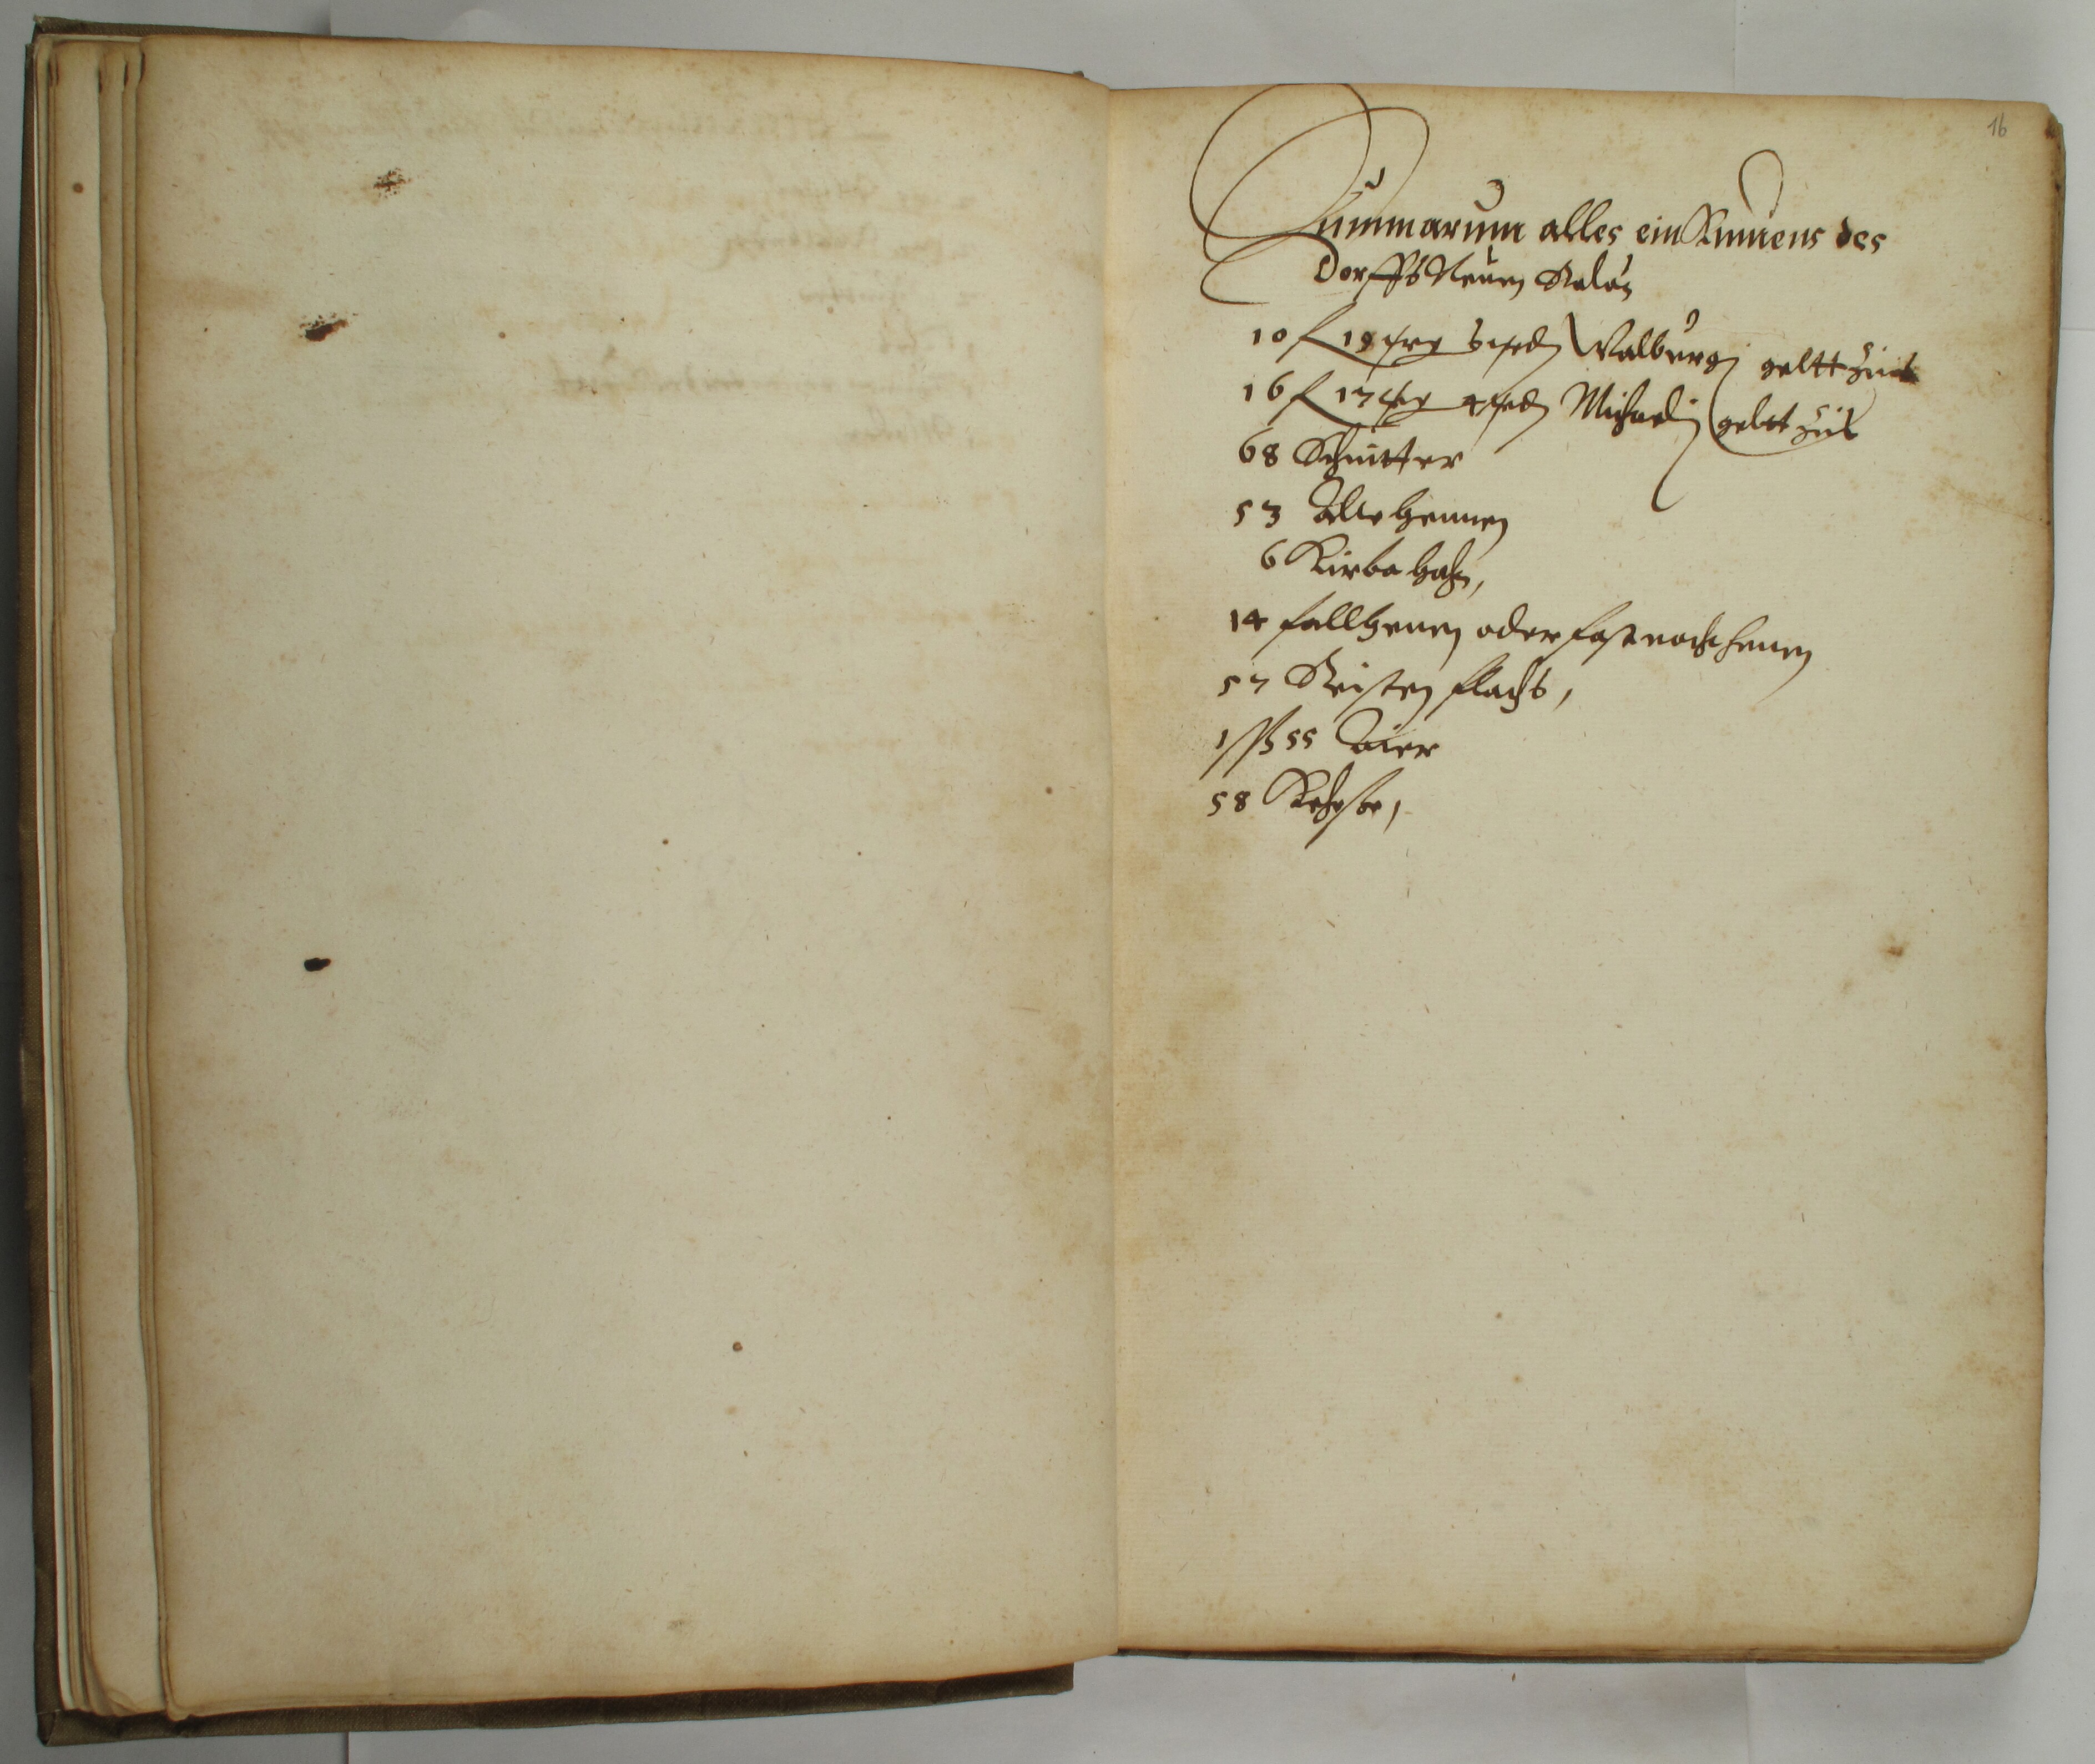 16
Summarum alles einkumens des
Dorffs Neuen
10 f 19 gr Walburgi geltt Zins
16 f 17 gr 4 Michaeli geltt Zins
68 Schnitter
53 Alte hennen
6 Kirba hahn,
14 fallhenen oder fastnacht henen
57 Reisten flachs,
1 ß 55 Aier
58 Kehse,